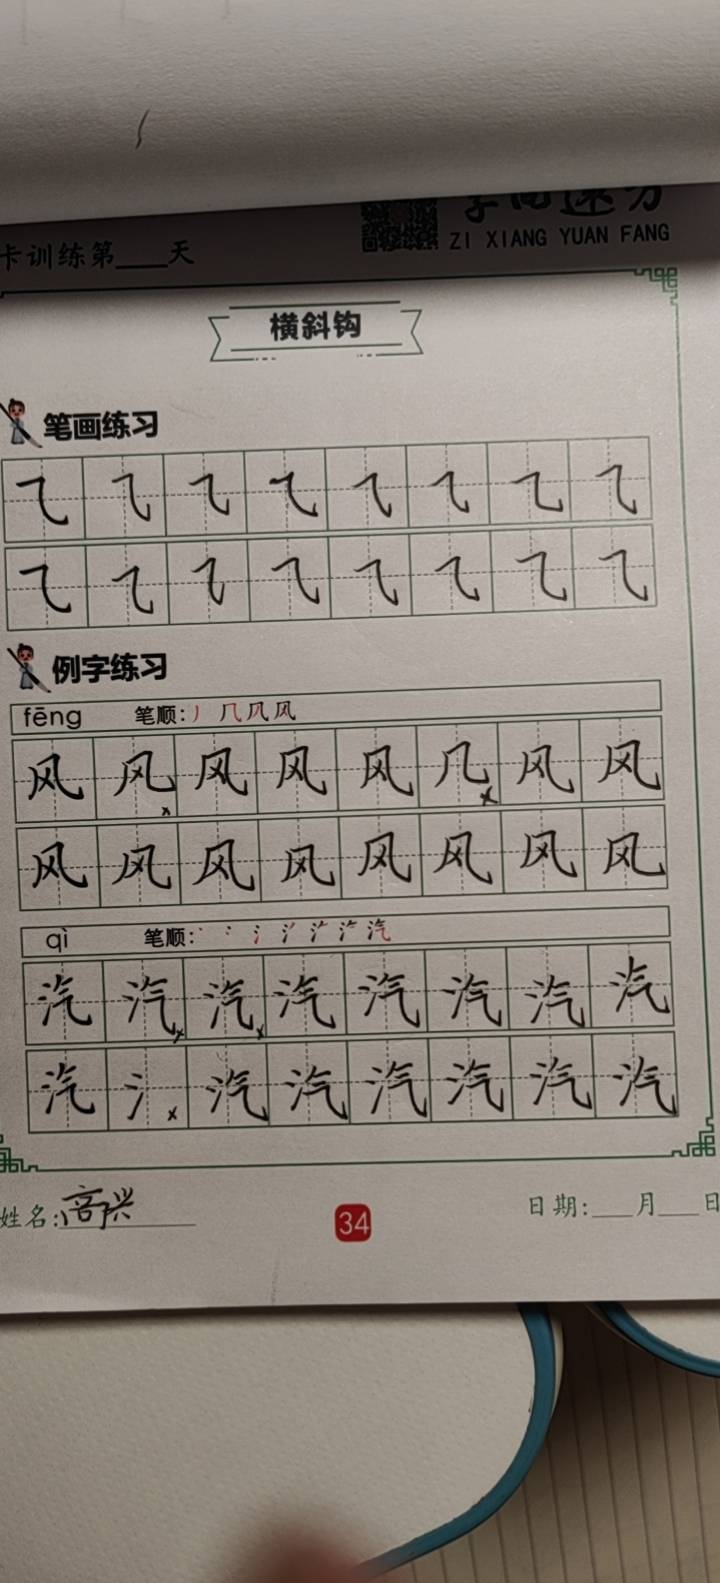 卡训练第____天
ZI XIANG YUAN FANG
横斜钩
笔画练习
⺄ ⺄ ⺄ ⺄ ⺄ ⺄ ⺄ ⺄
⺄ ⺄ ⺄ ⺄ ⺄ ⺄ ⺄ ⺄
例字练习
fēng 笔顺:丿 几 凤 风
风 风 风 风 风 几 风 风
风 风 风 风 风 风 风 风
qì 笔顺:丶 冫 氵 汽
汽 汽 汽 汽 汽 汽 汽 汽
汽 氵 汽 汽 汽 汽 汽 汽
姓名:高兴
34
日期:___月___日